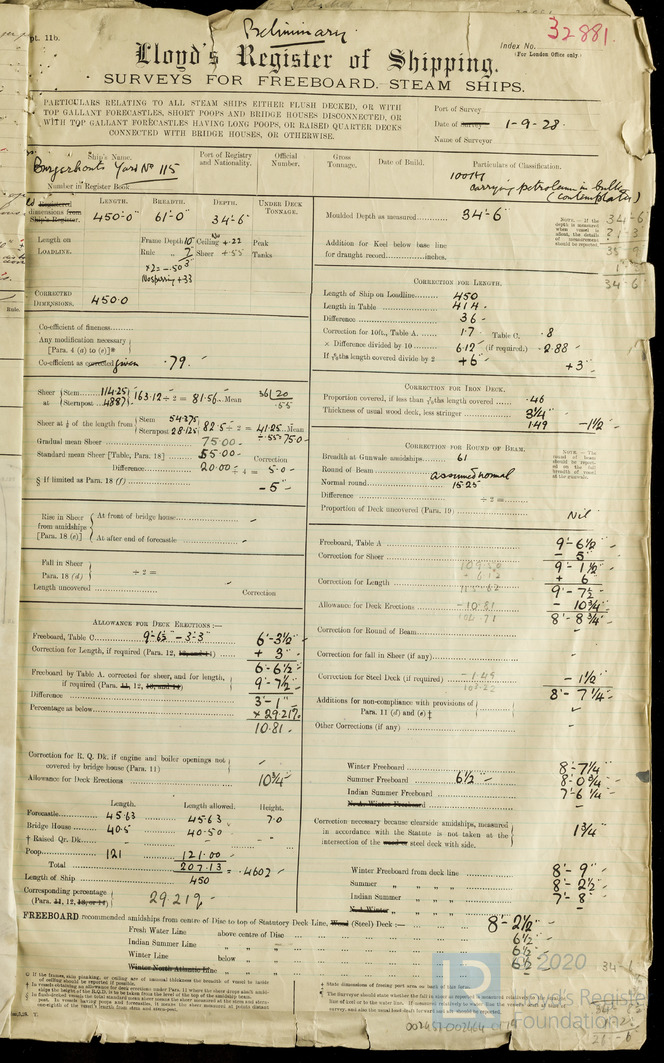 pt. 11b.
Preliminary.
32881.
Index No.
(For London Office only.)
Lloyd's Register of Shipping.
SURVEYS FOR FREEBOARD.-STEAM SHIPS.
PARTICULARS RELATING TO ALL STEAM SHIPS EITHER FLUSH DECKED, OR WITH
TOP GALLANT FORECASTLES, SHORT POOPS AND BRIDGE HOUSES DISCONNECTED, OR
WITH TOP GALLANT FORECASTLES HAVING LONG POOPS, OR RAISED QUARTER DECKS
CONNECTED WITH BRIDGE HOUSES, OR OTHERWISE.
Port of Survey
Date of Survey 1-9-28.
Name of Surveyor
Ship's Name.
Port of Registry and Nationality.
Official Number.
Gross Tonnage.
Date of Build.
Particulars of Classification.
Yard No 115
Number in Register Book
100A1
carrying petroleum in bulk
(contemplated)
LENGTH. BREADTH. DEPTH. UNDER DECK TONNAGE.
Registered dimensions from Ship's Register. 450'-0" 61'-0" 34'-6"
Length on LOADLINE.
Frame Depth 10" Ceiling +.22 Peak
Rule " 7" Sheer +.55 Tanks
No sparring +33
CORRECTED DIMENSIONS. 450.0
Moulded Depth as measured 34'-6"
Addition for Keel below base line
for draught record inches.
NOTE.—If the depth is measured when vessel is afloat, the details of measurement should be reported.
Co-efficient of fineness
Any modification necessary
[Para. 4 (a) to (e)]*
Co-efficient as corrected given .79.
CORRECTION FOR LENGTH.
Length of Ship on Loadline 450
Length in Table 414.
Difference 36
Correction for 10ft., Table A. 1.7 Table C. .8
× Difference divided by 10 6.12 (if required.) 2.88
If 6/10ths length covered divide by 2 +6" +3"
Sheer at Stem 114.25 163.12 ÷ 2 = 81.56 Mean
Sternpost 48.87
36|20
.55
Sheer at ⅛ of the length from Stem 54.375 82.5 ÷ 2 = 41.25 Mean
Sternpost 28.125 ÷.55=75.0
Gradual mean Sheer 75.00
Standard mean Sheer [Table, Para. 18] 55.00 Correction
Difference 20.00 ÷ 4 = 5.0
§ If limited as Para. 18 (f) -5"
CORRECTION FOR IRON DECK.
Proportion covered, if less than 7/10ths length covered .46
Thickness of usual wood deck, less stringer 3¼"
1.49 -1½"
CORRECTION FOR ROUND OF BEAM.
Breadth at Gunwale amidships 61
Round of Beam assumed normal
Normal round 15.25
Difference ÷ 2 =
Proportion of Deck uncovered (Para. 19) Nil
Rise in Sheer from amidships [Para. 18 (e)]
At front of bridge house
At after end of forecastle
Fall in Sheer Para. 18 (d) ÷ 2 =
Length uncovered Correction
ALLOWANCE FOR DECK ERECTIONS:—
Freeboard, Table C 9'-6½" - 3'-3" 6'-3½"
Correction for Length, if required (Para. 12, 13, and 14) + 3"
6'-6½"
Freeboard by Table A. corrected for sheer, and for length,
if required (Para. 11, 12, 13, and 14) 9'-7½"
Difference 3'-1"
Percentage as below × 29.21%
10.81
Correction for R. Q. Dk. if engine and boiler openings not
covered by bridge house (Para. 11)
Allowance for Deck Erections 10¾"
Freeboard, Table A 9'-6½"
Correction for Sheer - 5"
9'-1½"
Correction for Length + 6
9'-7½
Allowance for Deck Erections - 10¾"
8'-8¾"
Correction for Round of Beam
Correction for fall in Sheer (if any)
Correction for Steel Deck (if required) - 1½"
8'-7¼"
Additions for non-compliance with provisions of
Para. 11 (d) and (e) ‡
Other Corrections (if any)
Length. Length allowed. Height.
Forecastle 45.63 45.63 7.0
Bridge House 40.5 40.50
† Raised Qr. Dk.
Poop 121 121.00
Total 207.13 = .4602
Length of Ship 450
Corresponding percentage
(Para. 11, 12, 13, or 14) 29.21%
Winter Freeboard 8'-7¼"
Summer Freeboard 6½" 8'-0¾"
Indian Summer Freeboard 7'-6¼"
N. A. Winter Freeboard
Correction necessary because clearside amidships, measured
in accordance with the Statute is not taken at the
intersection of the wood or steel deck with side. 1¾"
Winter Freeboard from deck line 8'-9"
Summer " " " 8'-2½"
Indian Summer " " " 7'-8"
N.A. Winter
FREEBOARD recommended amidships from centre of Disc to top of Statutory Deck Line, Wood (Steel) Deck:— 8'-2½"
Fresh Water Line above centre of Disc 6½"
Indian Summer Line " " 6½"
Winter Line below " 6½"
Winter North Atlantic Line " "
© 2020
Lloyd's Register
Foundation